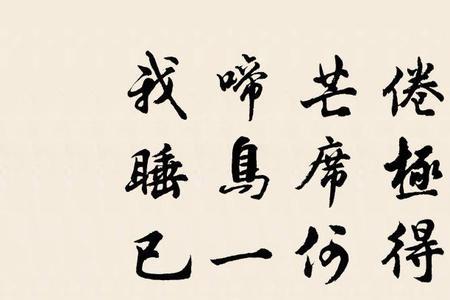 倦極得
芒席何
啼鳥一
我睡已